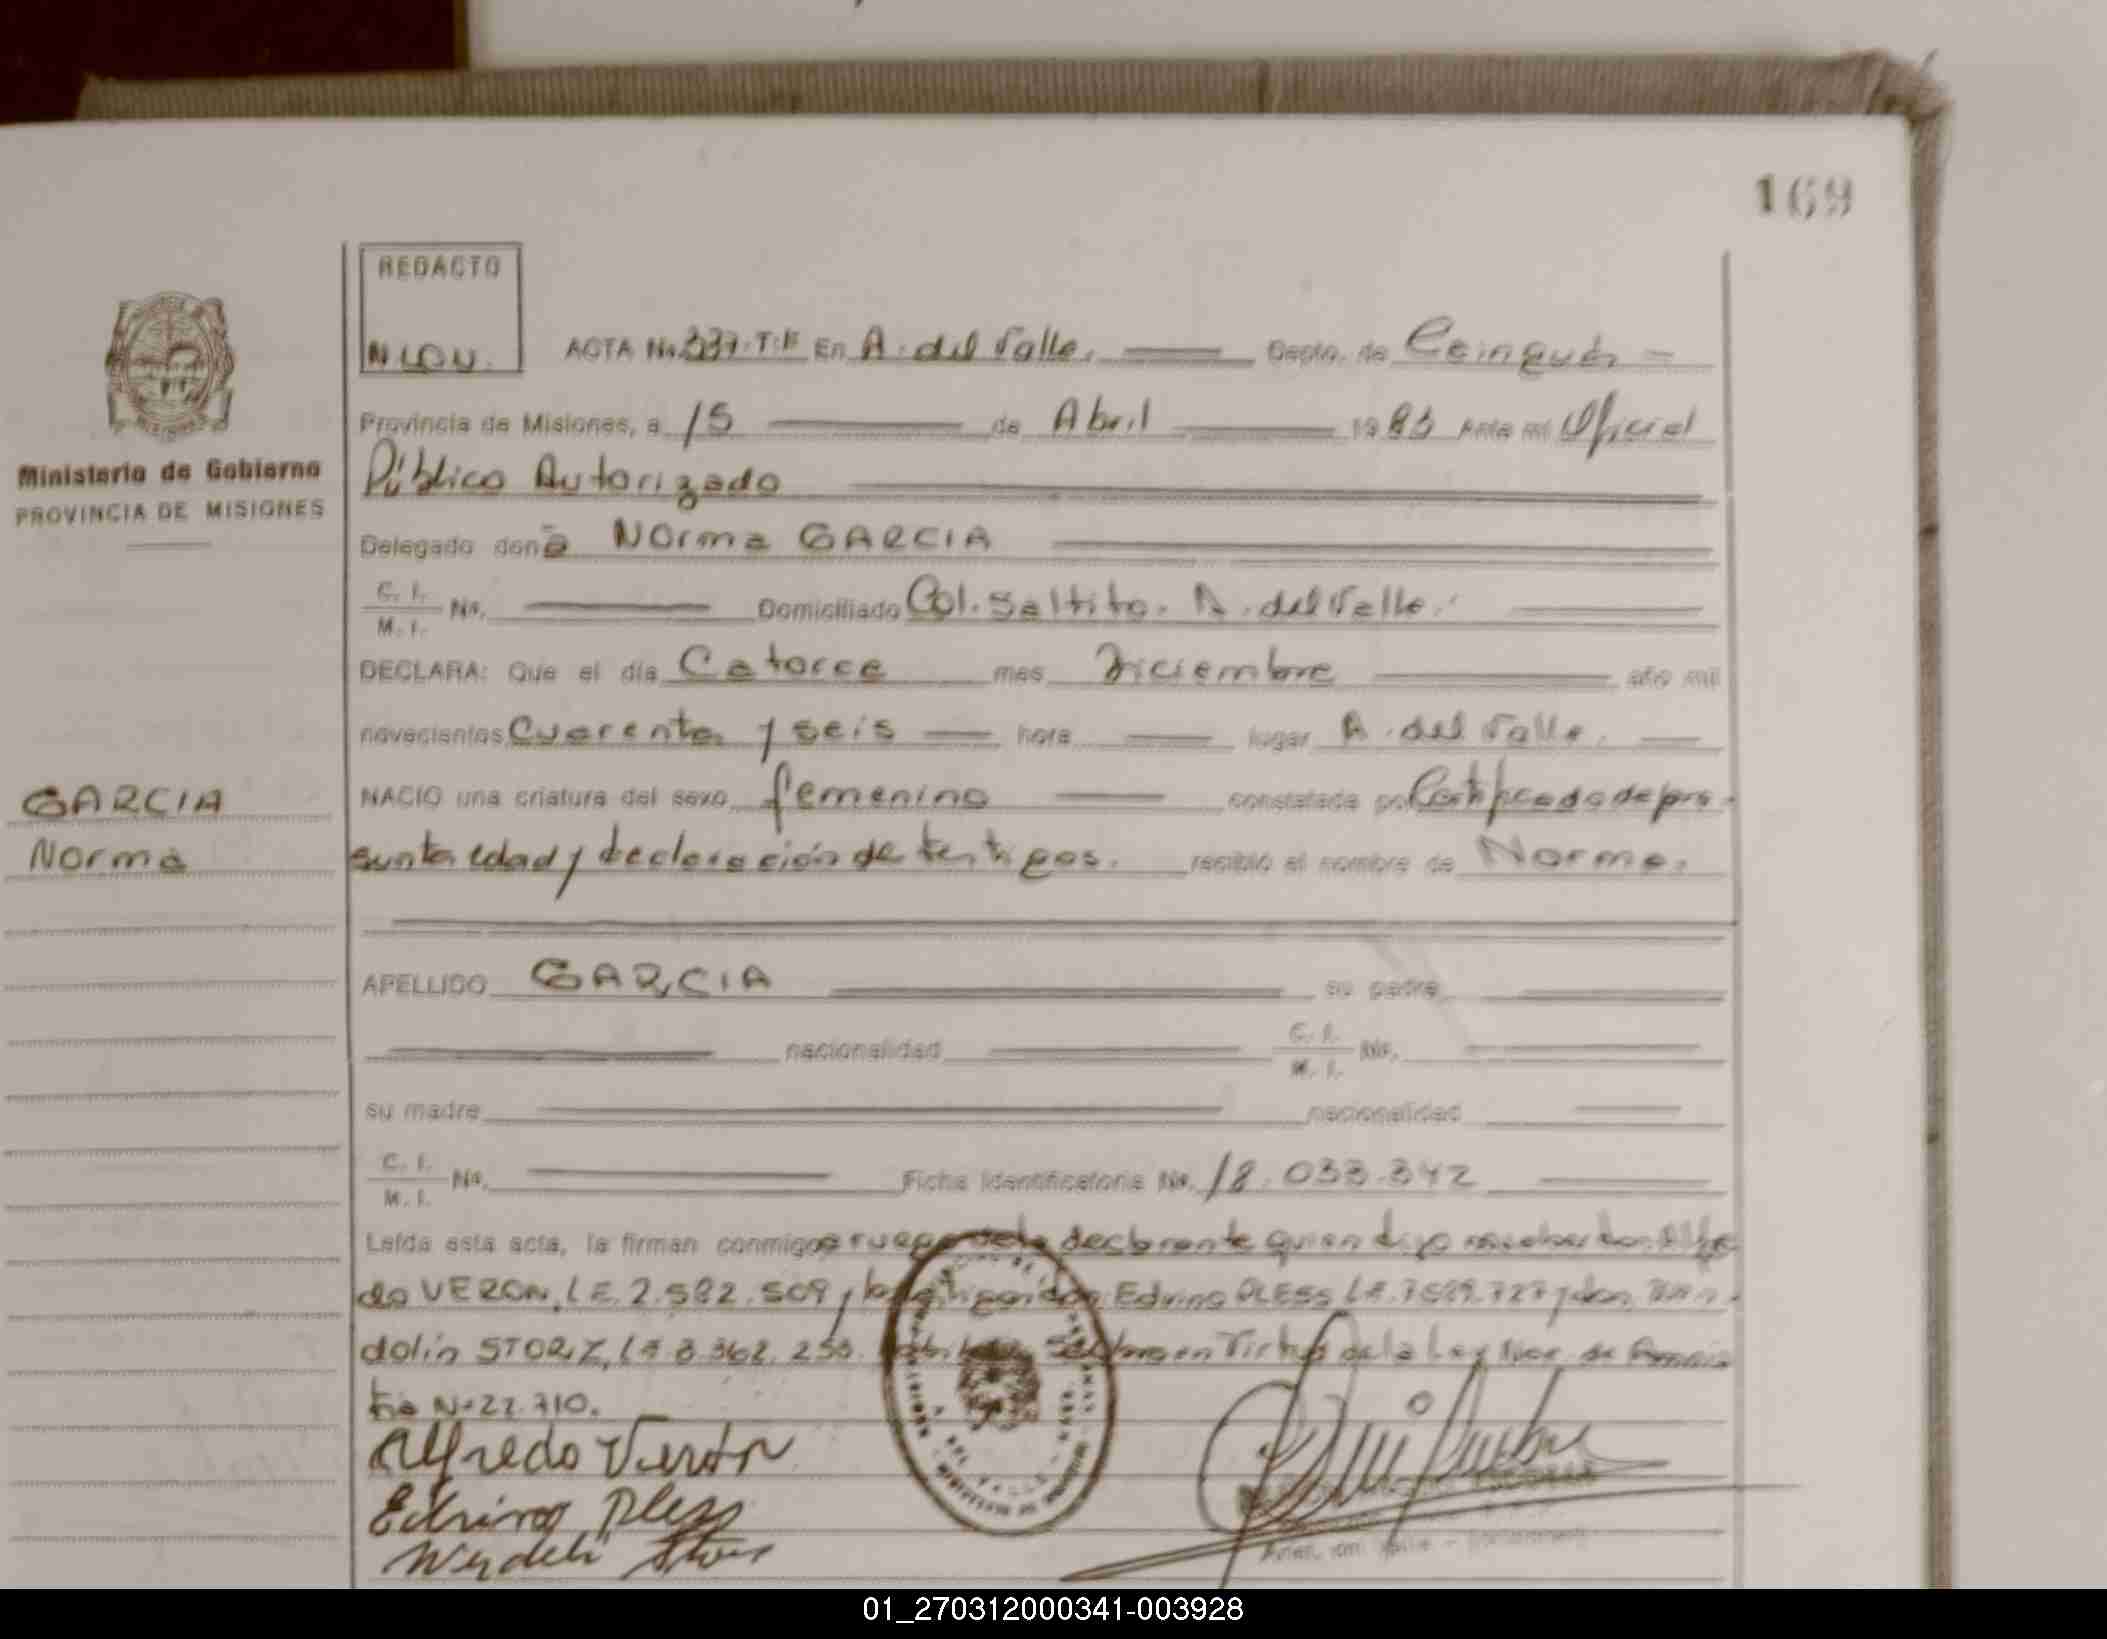 169
REDACTO
N.LOU.
ACTA No. 337.T:II En A. del Valle. Depto. de Cainguás
Provincia de Misiones, a 15 de Abril 1983 Ante mi Oficial
Público Autorizado
Ministerio de Gobierno
PROVINCIA DE MISIONES
Delegado doña Norma GARCIA
C. I. M. I. No. Domiciliado Col. Saltito. A. del Valle.
DECLARA: Que el día Catorce mes Diciembre año mil
novecientos Cuarenta y seis hora lugar A. del Valle.
GARCIA
Norma
NACIO una criatura del sexo femenino constatada por Certificado de pre-
sunta edad y declaración de testigos. recibió el nombre de Norma.
APELLIDO GARCIA su padre
nacionalidad C. I. M. I. No.
su madre nacionalidad
C. I. M. I. No. Ficha Identificatoria No. 18.033.342
Leída esta acta, la firman conmigo a ruego de la declarante quien dijo no saber don Alfre
do VERON, LE. 2.582.509 y los testigos don Edvino PLESS LE. 7.589.727 y don
dolín STORZ, LE 8.362.253. en Virtud de la Ley Nac. de Amnis
tía Nº 22.710.
Alfredo Verón
Edvino Pless
01_270312000341-003928